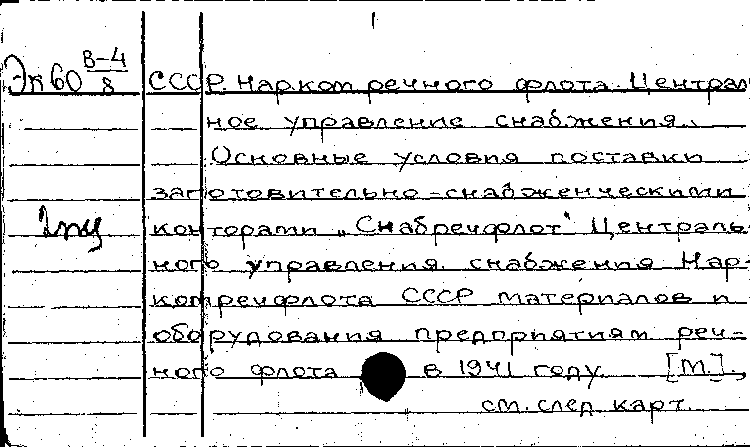 Эк60 В-4/8 СССР. Нарком речного флота. Централь
ное управление снабжения.
Основные условия поставки
заготовительно-снабженческими
конторами „Снабречфлот" Централь-
ного управления снабжения Нар-
комречфлота СССР материалов и
оборудования предприятиям реч-
ного флота в 1941 году. [М.],
см. след. карт.